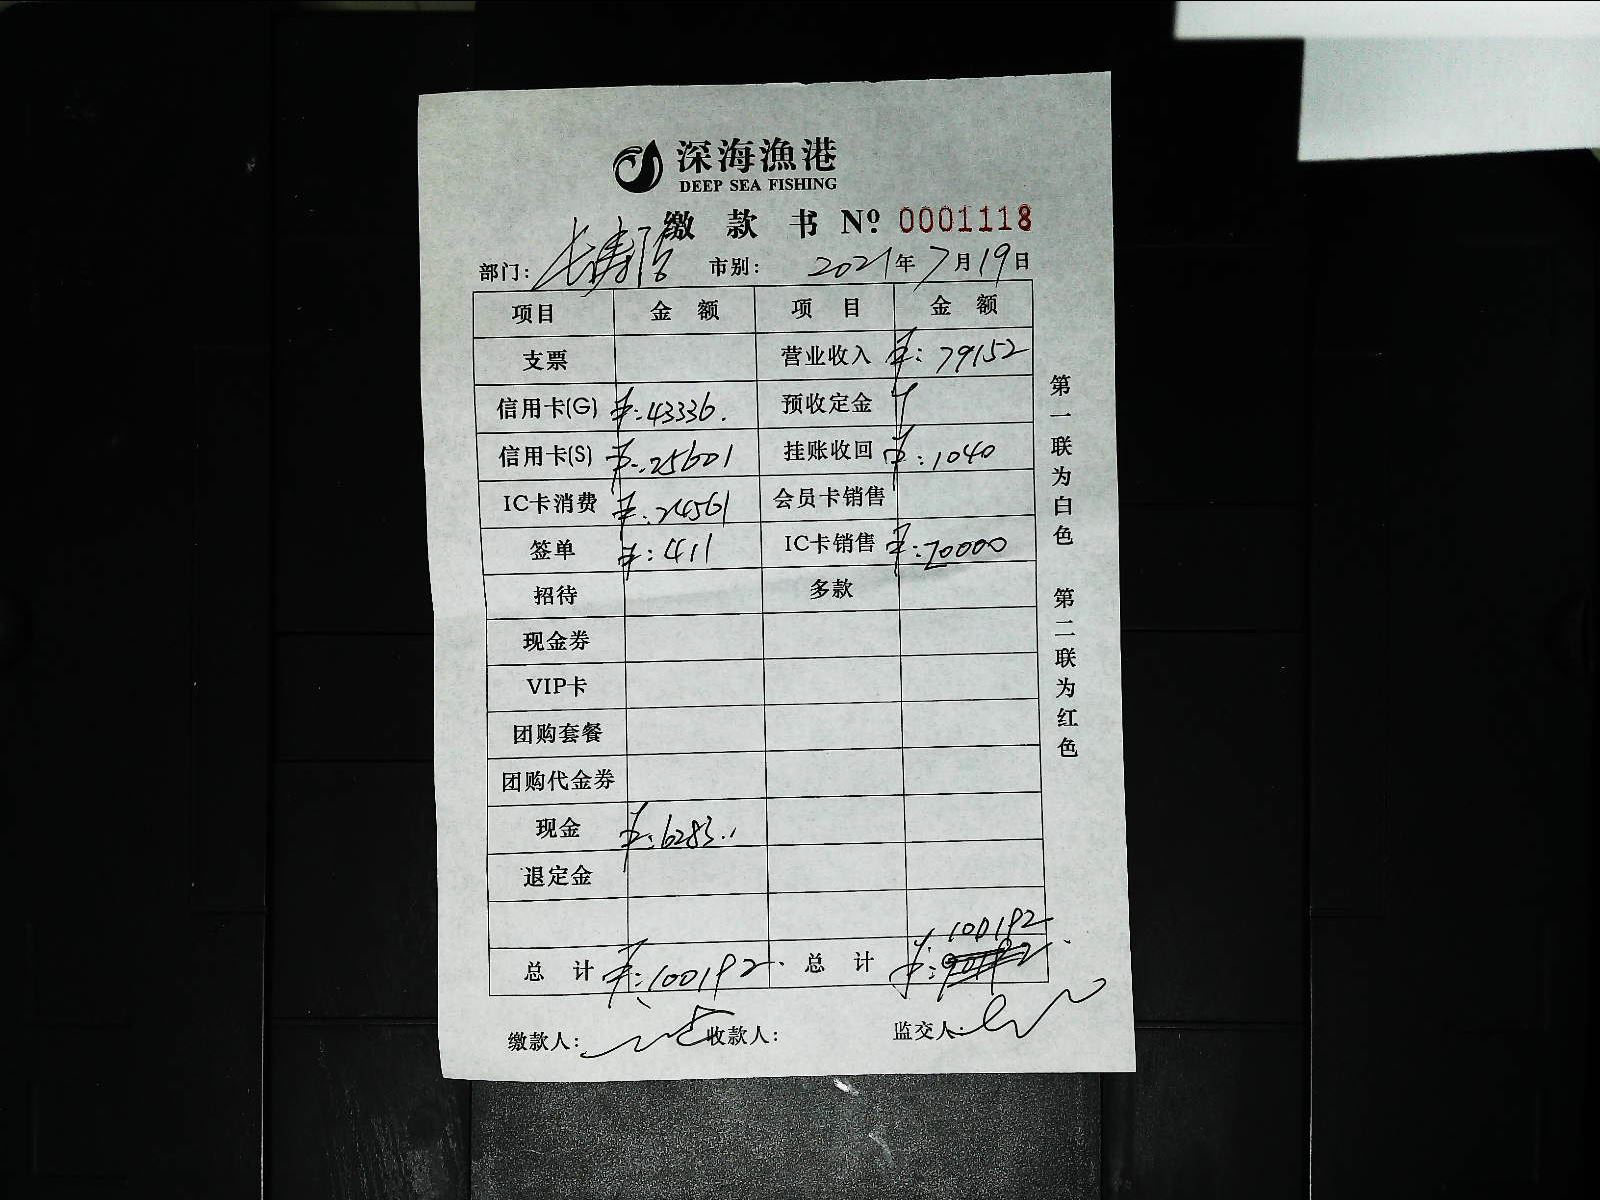 深海漁港
DEEP SEA FISHING
缴款书 Nº 0001118
部门: 长寿 市别: 2021年7月19日
项目 金额 项目 金额
支票 营业收入 ¥:79152
信用卡(G) ¥:43336. 预收定金
信用卡(S) ¥:25601 挂账收回 ¥:1040
IC卡消费 ¥:24561 会员卡销售
签单 ¥:411 IC卡销售 ¥:20000
招待 多款
现金券
VIP卡
团购套餐
团购代金券
现金 ¥:6283.
退定金
¥:100192
总计 ¥:100192. 总计 ¥:
缴款人: 收款人: 监交人:
第一联为白色 第二联为红色